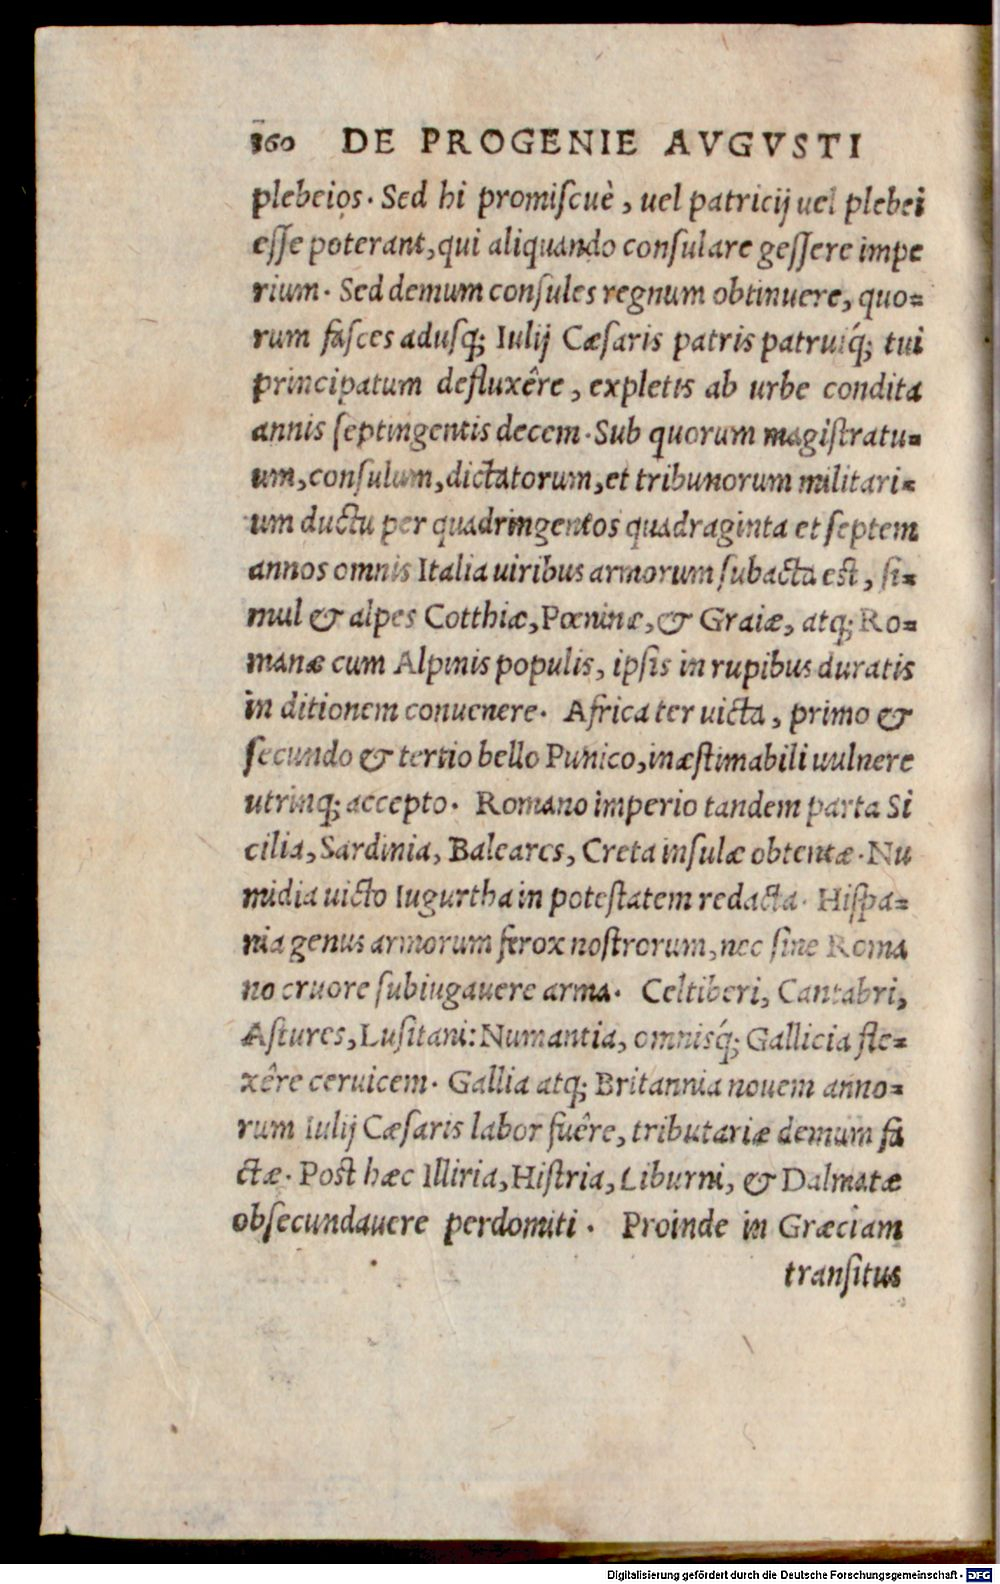 160 DE PROGENIE AVGVSTI
plebeios. Sed hi promiscuè, uel patricij uel plebei
esse poterant, qui aliquando consulare gessere impe
rium. Sed demum consules regnum obtinuere, quo=
rum fasces adusq; Iulij Cæsaris patris patruiq́; tui
principatum defluxêre, expletis ab urbe condita
annis septingentis decem. Sub quorum magistratu=
um, consulum, dictatorum, et tribunorum militari=
um ductu per quadringentos quadraginta et septem
annos omnis Italia uiribus armorum subacta est, si=
mul & alpes Cotthiæ, Pœninæ, & Graiæ, atq; Ro=
manæ cum Alpinis populis, ipsis in rupibus duratis
in ditionem conuenere. Africa ter uicta, primo &
secundo & tertio bello Punico, inæstimabili uulnere
utrinq; accepto. Romano imperio tandem parta Si
cilia, Sardinia, Baleares, Creta insulæ obtentæ. Nu
midia uicto Iugurtha in potestatem redacta. Hispa=
nia genus armorum ferox nostrorum, nec sine Roma
no cruore subiugauere arma. Celtiberi, Cantabri,
Astures, Lusitani: Numantia, omnisq́; Gallicia fle=
xêre ceruicem. Gallia atq; Britannia nouem anno=
rum Iulij Cæsaris labor fuêre, tributariæ demum fa
ctæ. Post hæc Illiria, Histria, Liburni, & Dalmatæ
obsecundauere perdomiti. Proinde in Græciam
transitus
Digitalisierung gefördert durch die Deutsche Forschungsgemeinschaft - DFG